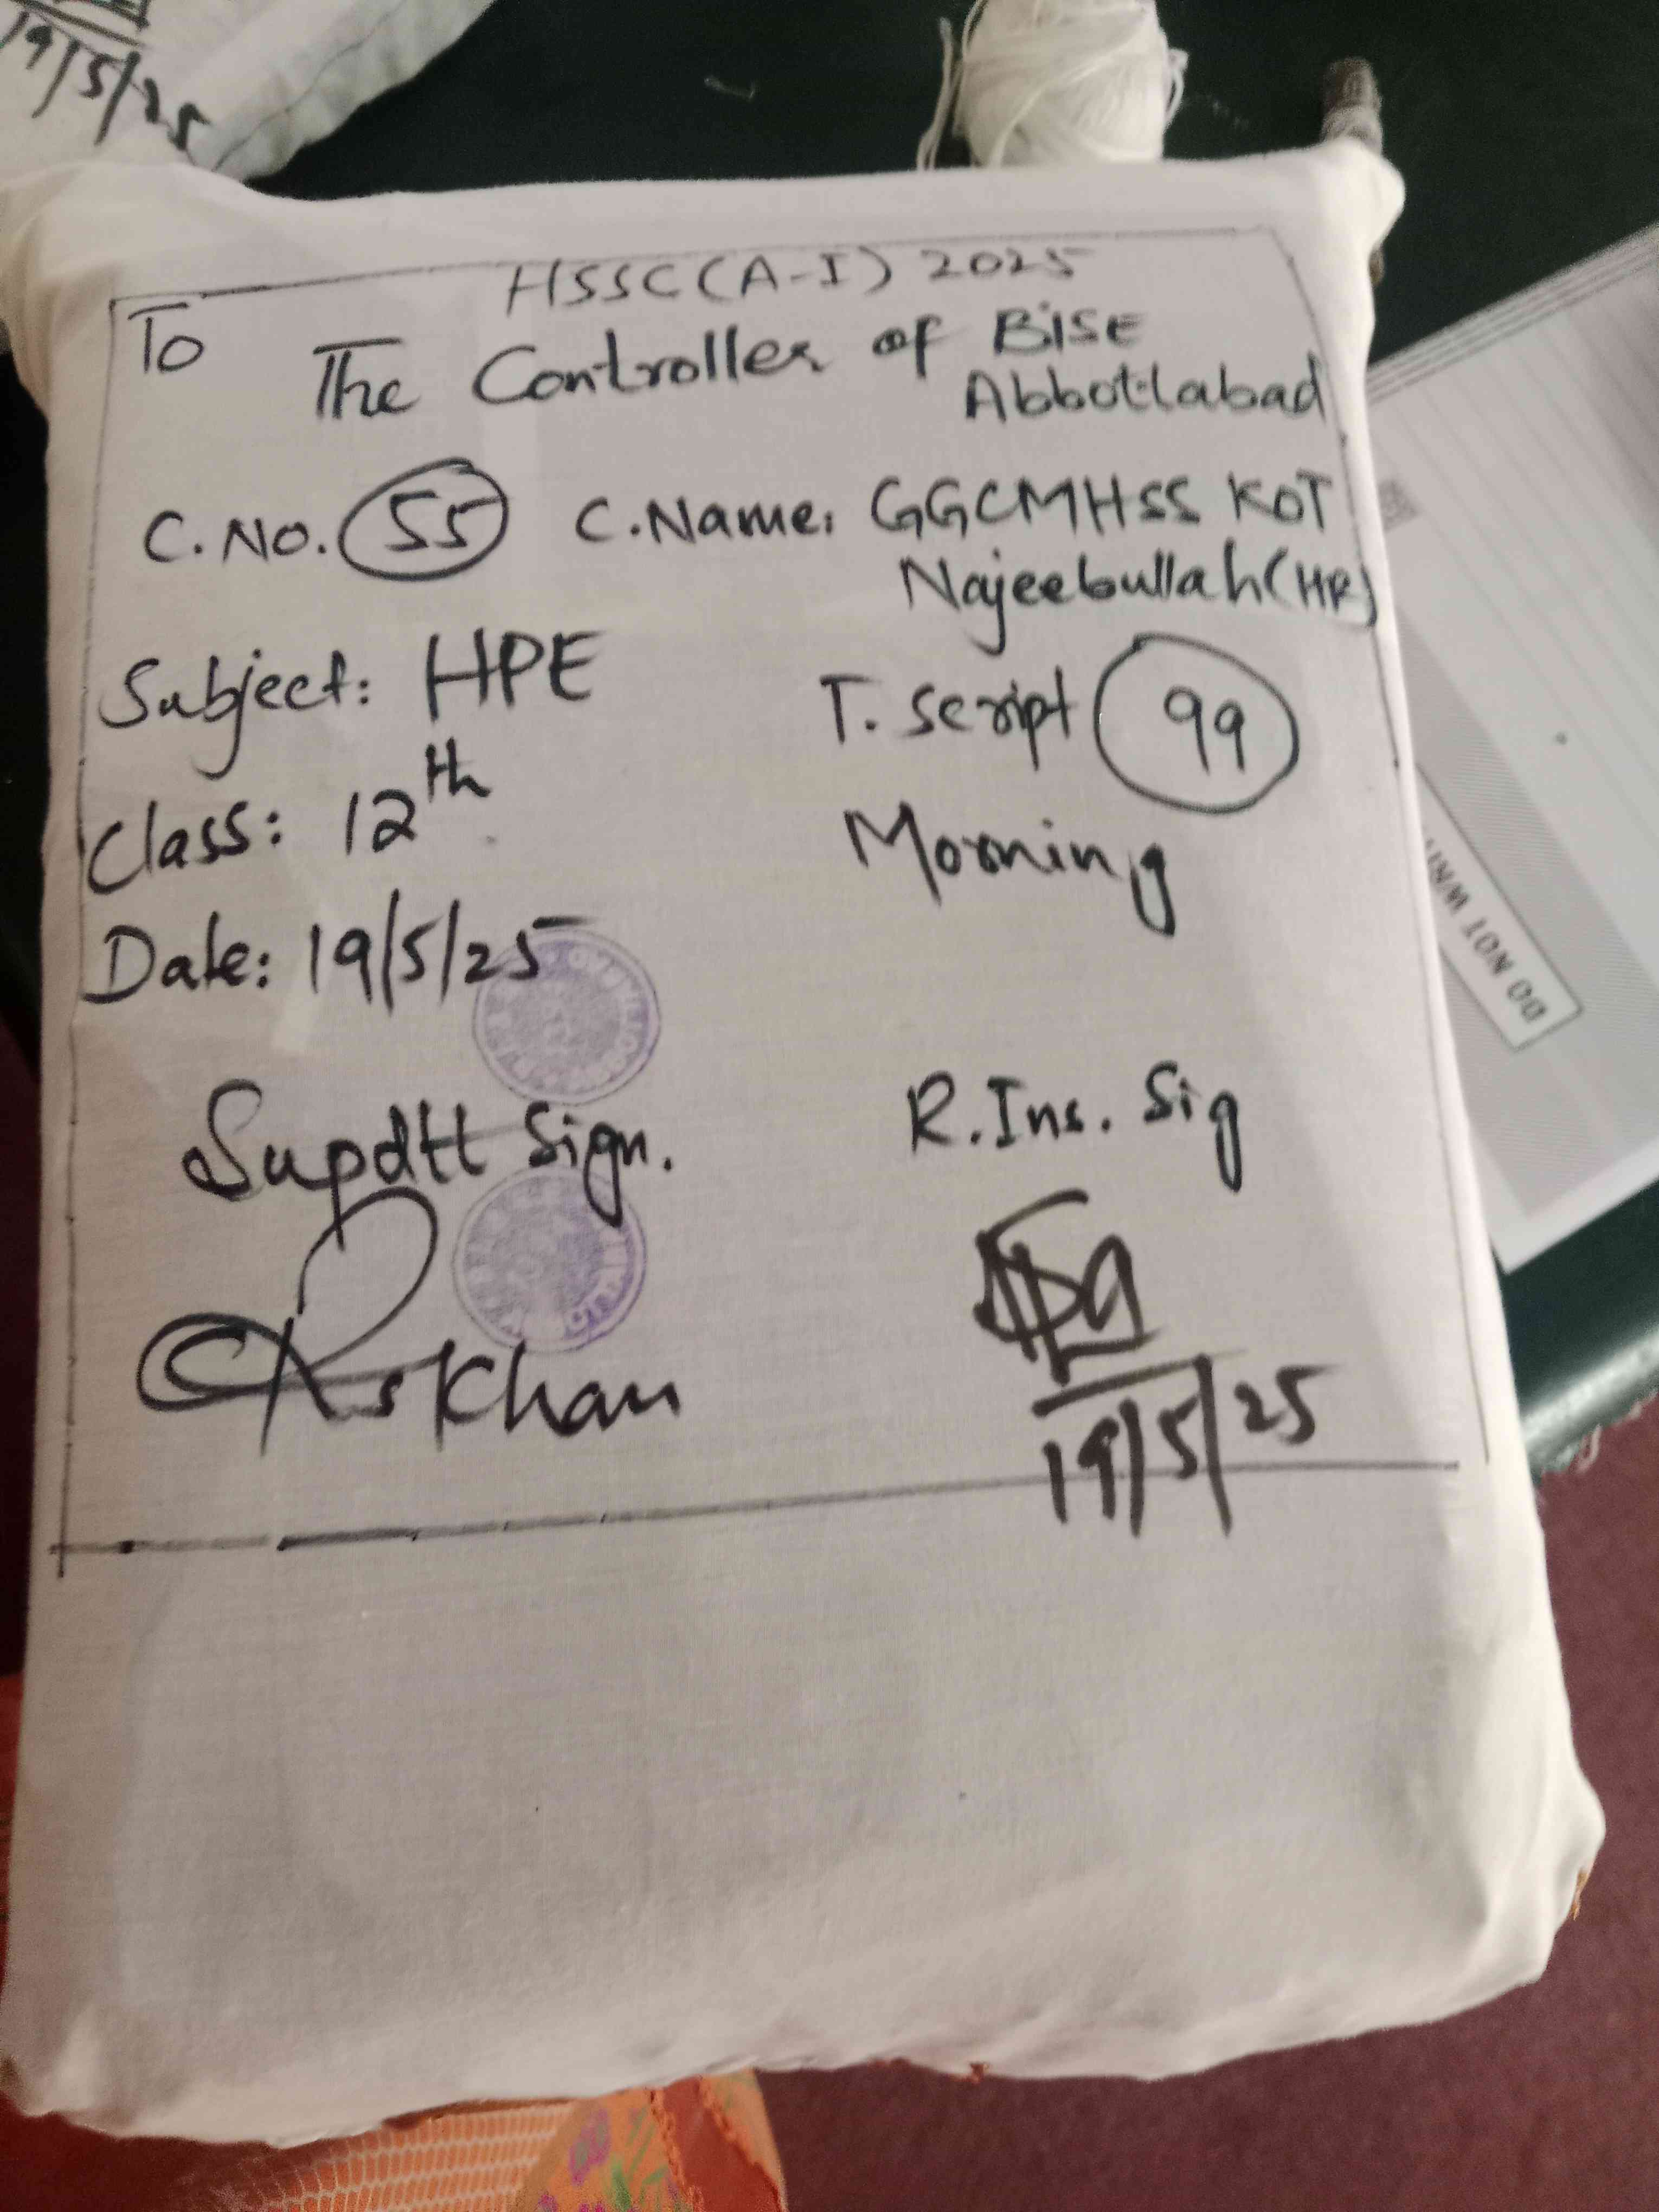 19/5/25
HSSC(A-I) 2025
To
The Controller of BISE
Abbottabad
C.No. 55 C.Name: GGCMHSS KOT
Najeebullah(HR)
Subject: HPE T. Script 99
Class: 12th Morning
Date: 19/5/25
Supdtt Sign. R.Ins. Sig
Khan
19/5/25
DO NOT